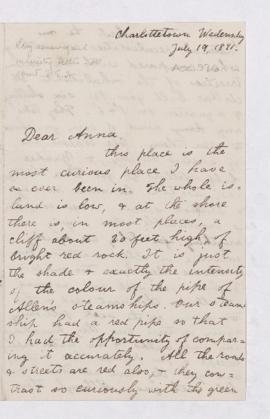 Charlottetown Wednesday
July 19, 1871.
Dear Anna.
this place is the
most curious place I have
ever been in. The whole is-
land is low, & at the shore
there is, in most places, a
cliff about 80 feet high of
bright red rock. It is just
the shade & exactly the intensity
of the colour of the pipe of
Allen's steamships. Our steam
ship had a red pipe so that
I had the opportunity of compar-
ing it accurately. All the roads
& streets are red also, & they con-
trast so curiously with the green